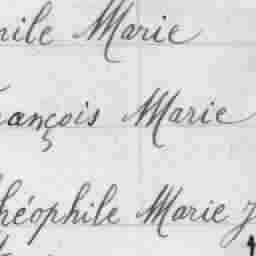 hile Marie
rançois Marie
Théophile Marie J